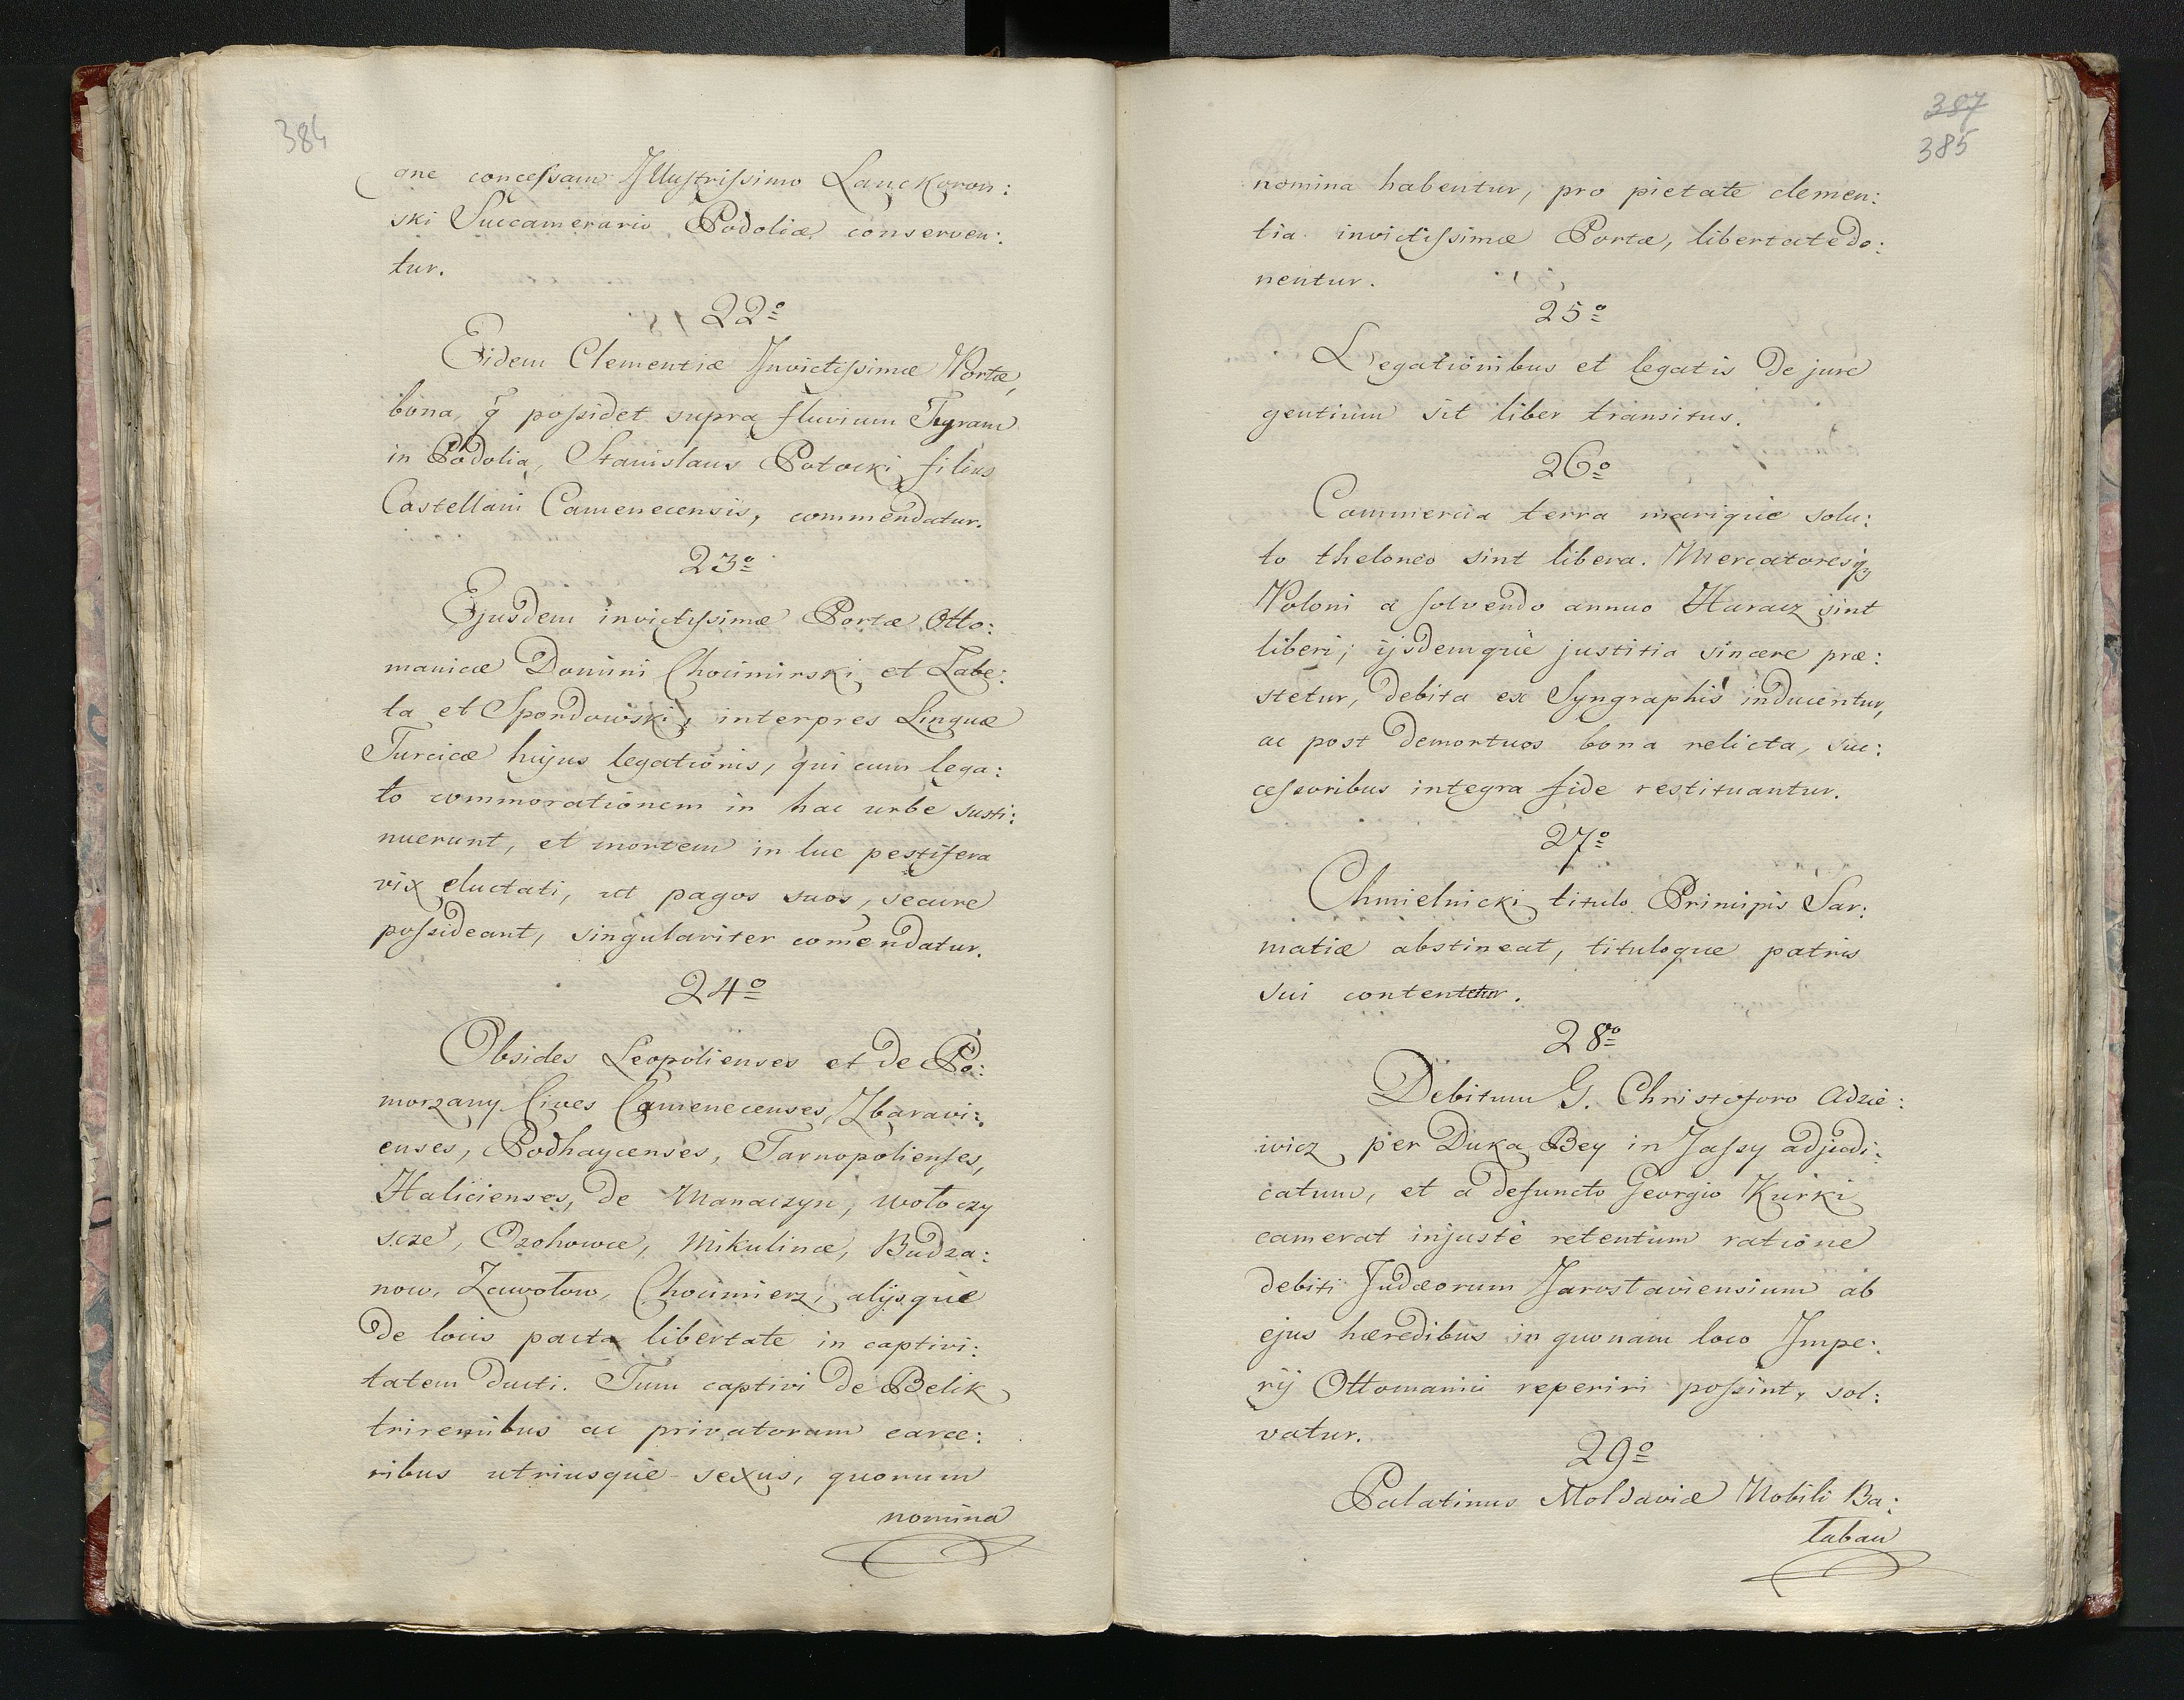 384
gne concessam Illustrissimo Lanckoron:
ski Succamerario Podoliæ conserven:
tur.
22º
Eidem Clementiæ Invictissimæ Portæ,
bona, q̃ possidet supra fluvium Tyram
in Podolia, Stanislaus Potocki filius
Castellani Camenecensis, commendatur.
23º
Ejusdem invictissimæ Portæ Otto:
manicæ Domini Chocimirski et Labe:
ta et Spondowski, interpres Linguæ
Turcicæ hujus legationis, qui cum lega:
to commorationem in hac urbe susti:
nuerunt, et mortem in lue pestifera
vix eluctati, ut pagos suos, secure
possideant, singulariter com̃endatur.
24º
Obsides Leopolienses et de Po:
morzany Cives Camenecenses, Zbaravi:
enses, Podhaycenses, Tarnopolienses,
Halicienses, de Manaczyn, Wołoczy
scze, Ozohowce, Mikulince, Budza:
now, Zawołow, Chocimierz, alijsque
de locis pacta libertate in captivi:
tatem ducti. Tum captivi de Belik
triremibus ac privatorum carce:
ribus utriusque sexus, quorum
nomina
387
385
nomina habentur, pro pietate clemen:
tia invictissimæ Portæ, libertate do:
nentur.
25º
Legationibus et legatis de jure
gentium sit liber transitus.
26º
Commercia terra marique solu:
to theloneo sint libera. Mercatoresq̃
Poloni a solvendo annuo Haracz sint
liberi; ijsdemque justitia sincere præ:
stetur, debita ex Syngraphis inducentur,
ac post demortuos bona relicta, suc:
cessoribus integra fide restituantur.
27º
Chmielnicki titulo Principis Sar:
matiæ abstineat, tituloque patris
sui contentetur.
28º
Debitum G. Christoforo Adzie:
wicz per Duka Bey in Jassy adjudi:
catum, et a defuncto Georgio Kurki
camerat injuste retentum ratione
debiti Judæorum Jarosłaviensium ab
ejus hæredibus in quonam loco Impe:
rij Ottomanici reperiri possint, sol:
vatur.
29º
Palatinus Moldaviæ Nobili Ba:
taban